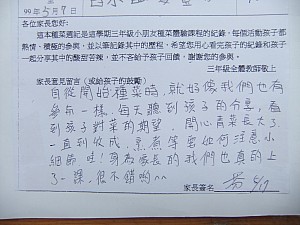 99年5月9日
各位家長您好:
這本種菜週記是這學期三年級小朋友種菜體驗課程的紀錄,每個活動孩子都
熱情、積極的參與,並以筆紀錄其中的歷程,希望您用心看完孩子的紀錄和孩子
一起分享其中的酸甜苦辣,並不吝給予孩子回饋,謝謝您的參與。
三年級全體教師敬上
家長意見留言(或給孩子的鼓勵)
自從開始種菜時,就好像我們也有
參與一樣,每天聽到孩子的分享,看
到孩子對菜的期望,開心青菜長大了
一直到收成,烹煮等要如何注意小
細節哇!身為家長的我們也真的上
了一課,很不錯喲^^
家長簽名